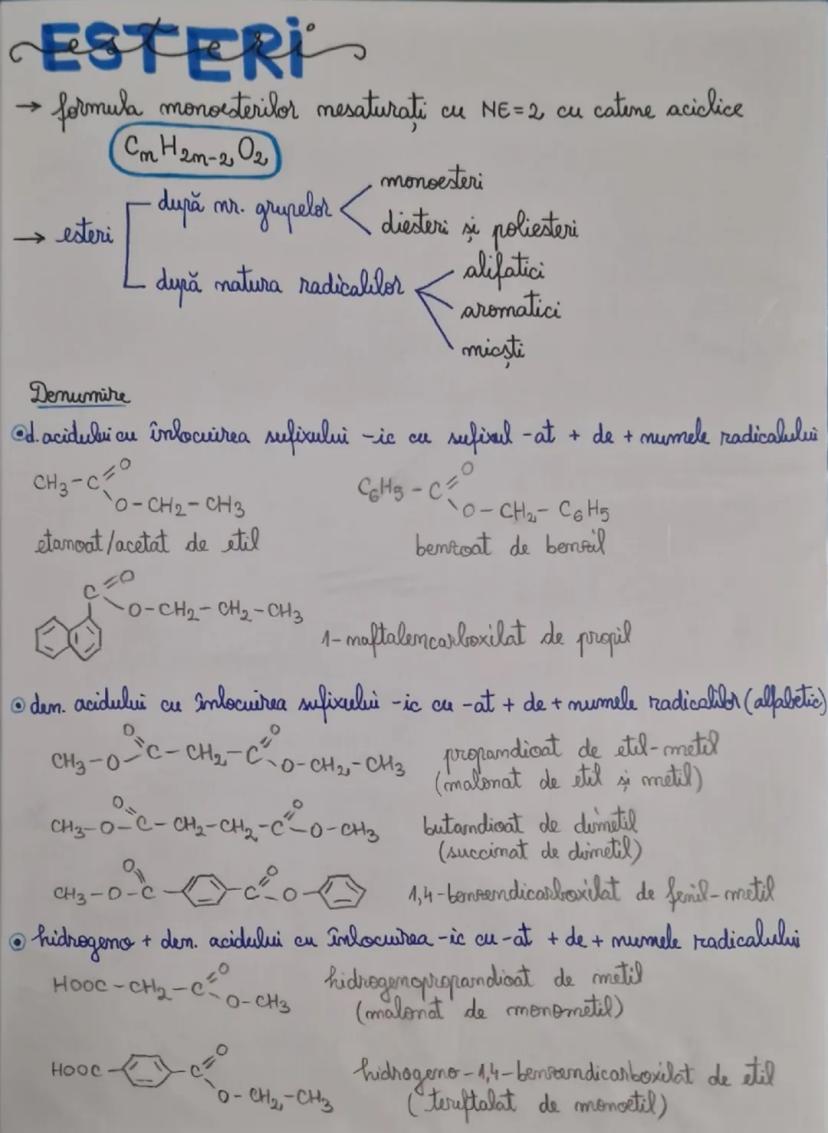 ESTERI
esteri
→ formula monoesterilor nesaturați cu NE=2 cu catene aciclice
CnH2n-2O2
→ esteri
după nr. grupelor
monoesteri
diesteri și poliesteri
după natura radicalilor
alifatici
aromatici
micști
Denumire
d. acidului cu înlocuirea sufixului -ic cu sufixul -at + de + numele radicalului
CH3-C=O
O-CH2-CH3
C6H5-C=O
O-CH2-C6H5
etanoat/acetat de etil
benzoat de benzil
C=O
O-CH2-CH2-CH3
1-naftalencarboxilat de propil
den. acidului cu înlocuirea sufixului -ic cu -at + de + numele radicalilor (alfabetic)
CH3-O-C(=O)-CH2-C(=O)-O-CH2-CH3
propandioat de etil-metil
(malonat de etil și metil)
CH3-O-C(=O)-CH2-CH2-C(=O)-O-CH3
butandioat de dimetil
(succinat de dimetil)
CH3-O-C(=O)- -C(=O)-O-
1,4-benzendicarboxilat de fenil-metil
hidrogeno + den. acidului cu înlocuirea -ic cu -at + de + numele radicalului
HOOC-CH2-C=O
O-CH3
hidrogenopropandioat de metil
(malonat de monometil)
HOOC- -C=O
O-CH2-CH3
hidrogeno-1,4-benzendicarboxilat de etil
(tereftalat de monoetil)